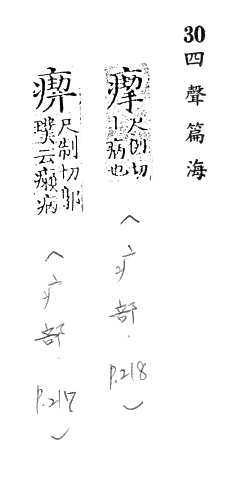 30
四聲篇海
尺制切
丨病也
(疒部. P.218)
尺制切郭
璞云病
(疒部. P.217)